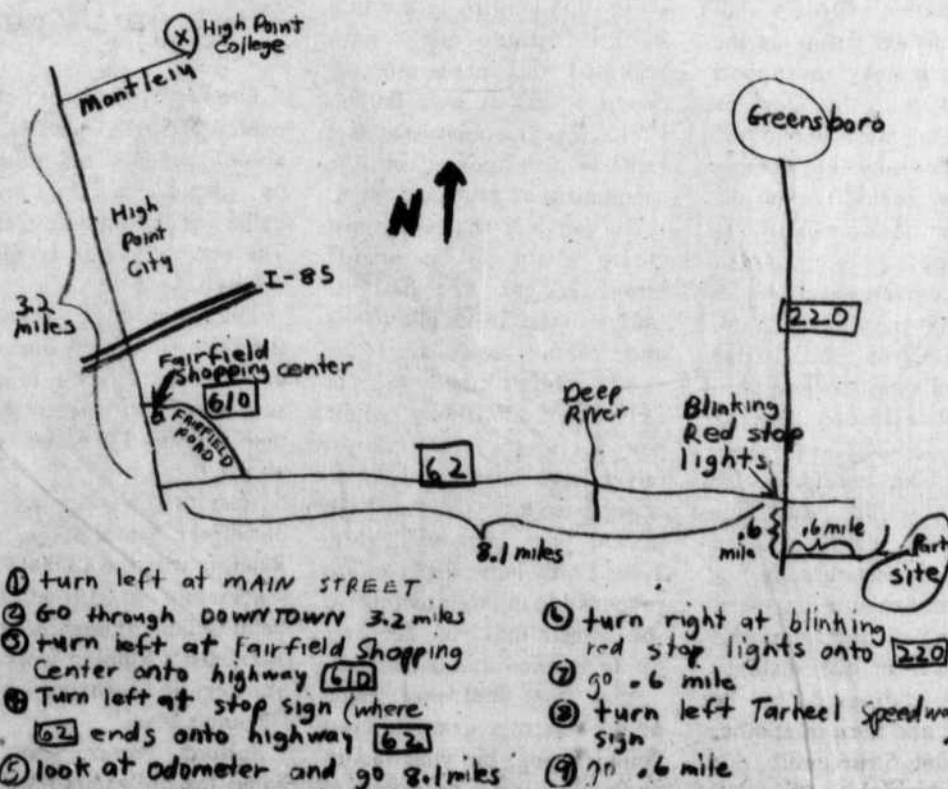 X High Point
College
Montleiu
Greensboro
N
High
Point
City
I-85
3.2
miles
220
Fairfield
Shopping center
610
FAIRFIELD
ROAD
Deep
River
Blinking
Red stop
lights
62
8.1 miles
.6
mile
.6 mile
Part
site
① turn left at MAIN STREET
② GO through DOWNTOWN 3.2 miles
③ turn left at Fairfield Shopping
Center onto highway 610
④ Turn left at stop sign (where
62 ends onto highway 62
⑤ look at odometer and go 8.1 miles
⑥ turn right at blinking
red stop lights onto 220
⑦ go .6 mile
⑧ turn left Tarheel Speedwa
sign
⑨ go .6 mile